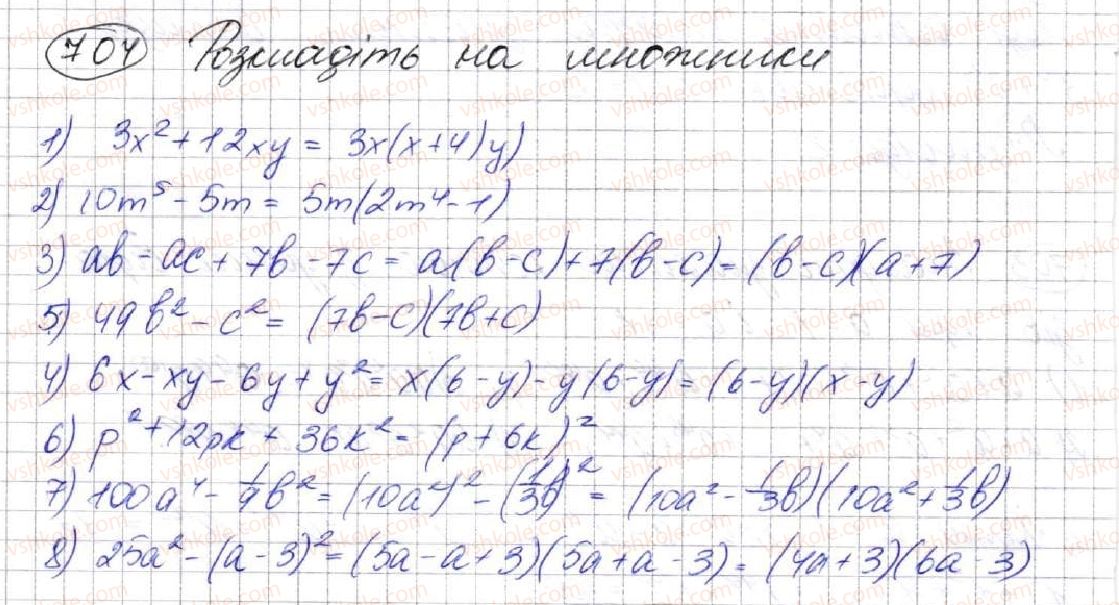 704 Розкладіть на множники
1) 3x² + 12xy = 3x(x+4)y)
2) 10m⁵ - 5m = 5m(2m⁴ - 1)
3) ab - ac + 7b - 7c = a(b-c) + 7(b-c) = (b-c)(a+7)
5) 49b² - c² = (7b-c)(7b+c)
4) 6x - xy - 6y + y² = x(6-y) - y(6-y) = (6-y)(x-y)
6) p² + 12pk + 36k² = (p+6k)²
7) 100a⁴ - 1/9 b² = (10a²)² - (1/3 b)² = (10a² - 1/3 b)(10a² + 1/3 b)
8) 25a² - (a-3)² = (5a-a+3)(5a+a-3) = (4a+3)(6a-3)